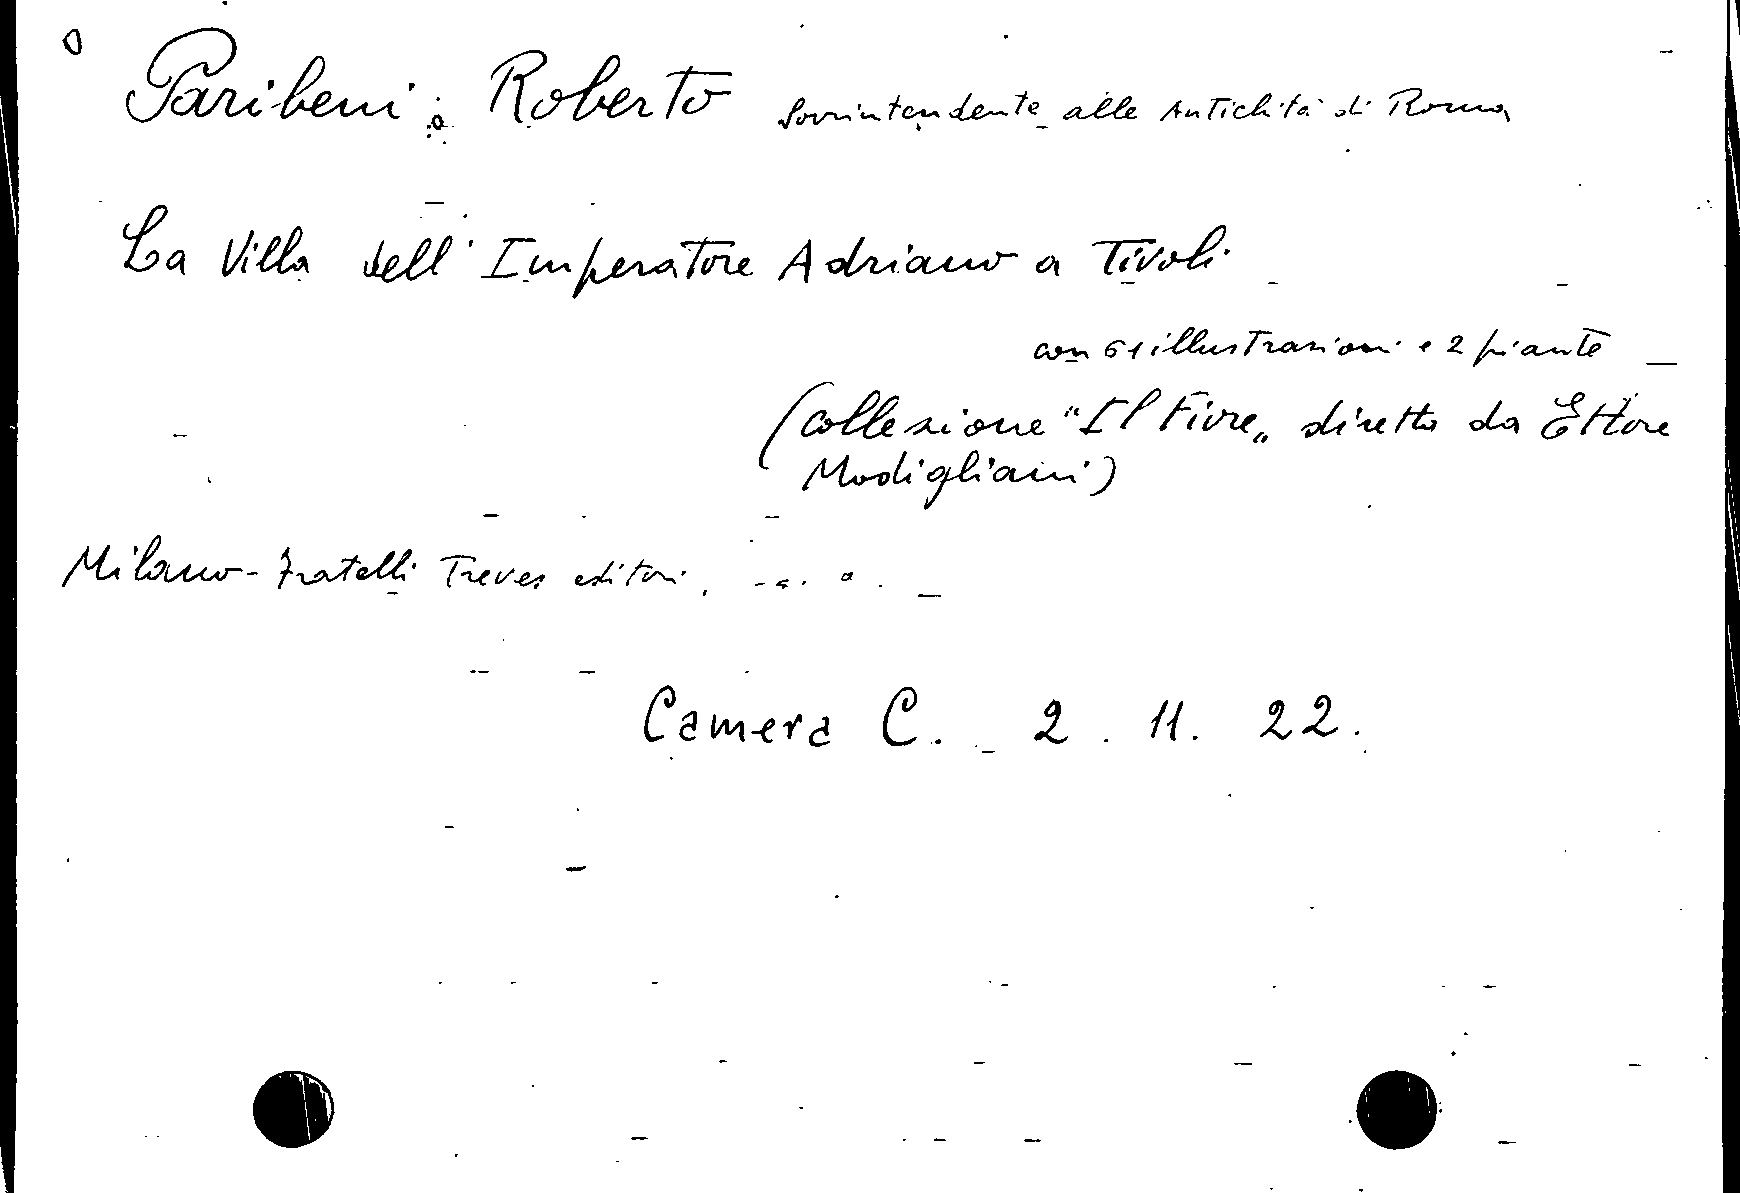 Paribeni Roberto Sovrintendente alle Antichità di Roma
La Villa dell'Imperatore Adriano a Tivoli
con 61 illustrazioni e 2 piante
(collezione "Il Fiore„ diretta da Ettore
Modigliani)
Milano - Fratelli Treves editori.
Camera C. 2. 11. 22.